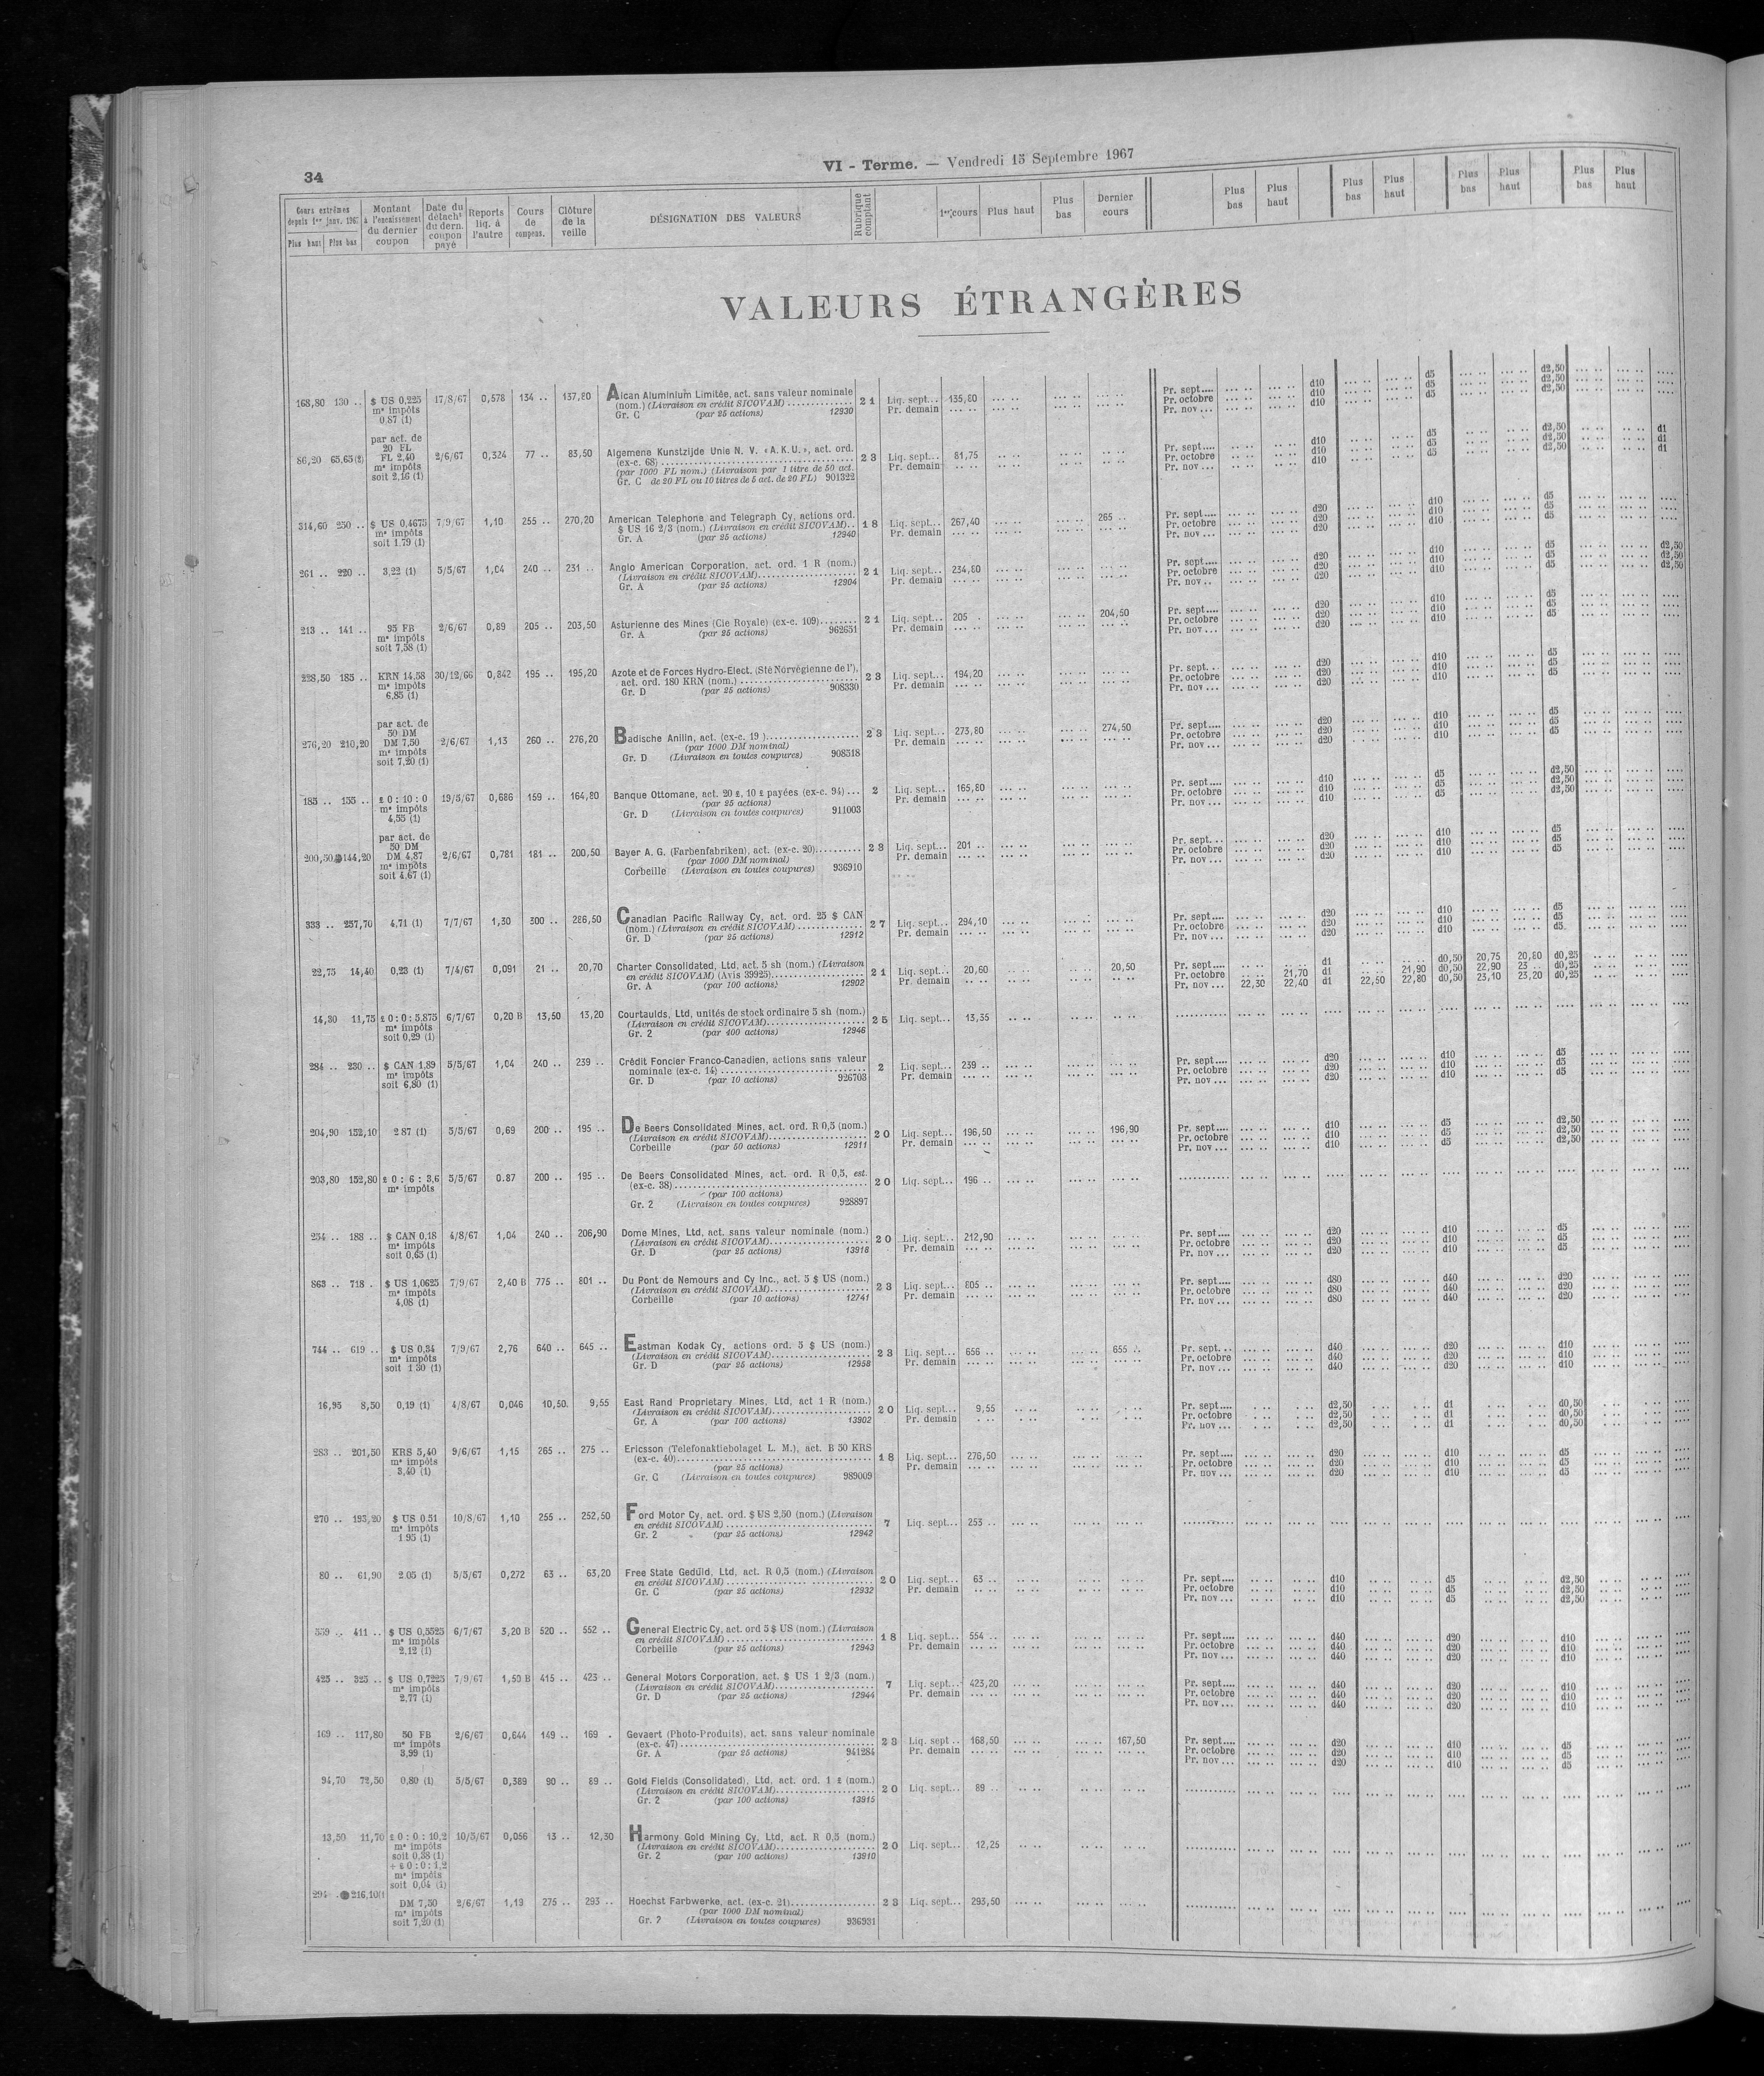 34
VI - Terme. — Vendredi 15 Septembre 1967
Cours extrêmes depuis 1er janv. 196 | Montant à l'encaissement du dernier coupon | Date du détacht du dern. coupon payé | Reports liq. à l'autre | Cours de compens. | Clôture de la veille | DÉSIGNATION DES VALEURS | Rubrique comptant | 1er cours | Plus haut | Plus bas | Dernier cours | Plus bas | Plus haut | Plus bas | Plus haut | Plus bas | Plus haut | Plus bas | Plus haut
Plus haut | Plus bas
VALEURS ÉTRANGÈRES
168,80 130 .. $ US 0,225 17/8/67 0,578 134 .. 137,80 Alcan Aluminium Limitée, act. sans valeur nominale 21 Liq. sept... 135,80 Pr. sept.... d10 d5 d2,50
mes impôts (nom.) (Livraison en crédit SICOVAM) Pr. demain Pr. octobre d10 d5 d2,50
0,87 (1) Gr. C (par 25 actions) 12930 Pr. nov ... d10 d5 d2,50
par act. de
20 FL
86,20 65,65(2) FL 2,40 2/6/67 0,324 77 .. 83,50 Algemene Kunstzijde Unie N. V. « A.K.U. », act. ord. 23 Liq. sept... 81,75 Pr. sept.... d10 d5 d2,50 d1
mes impôts (ex-c. 68) Pr. demain Pr. octobre d10 d5 d2,50 d1
soit 2,16 (1) (par 1000 FL nom.) (Livraison par 1 titre de 50 act. Pr. nov ... d10 d5 d2,50 d1
Gr. C de 20 FL ou 10 titres de 5 act. de 20 FL) 901322
314,60 250 .. $ US 0,4675 7/9/67 1,10 255 .. 270,20 American Telephone and Telegraph Cy, actions ord. 18 Liq. sept... 267,40 265 .. Pr. sept.... d20 d10 d5
mes impôts $ US 16 2/3 (nom.) (Livraison en crédit SICOVAM).. Pr. demain Pr. octobre d20 d10 d5
soit 1.79 (1) Gr. A (par 25 actions) 12940 Pr. nov ... d20 d10 d5
261 .. 220 .. 3,22 (1) 5/5/67 1,04 240 .. 231 .. Anglo American Corporation, act. ord. 1 R (nom.) 21 Liq. sept... 234,80 Pr. sept.... d20 d10 d5 d2,50
(Livraison en crédit SICOVAM) Pr. demain Pr. octobre d20 d10 d5 d2,50
Gr. A (par 25 actions) 12904 Pr. nov .. d20 d10 d5 d2,50
213 .. 141 .. 95 FB 2/6/67 0,89 205 .. 203,50 Asturienne des Mines (Cie Royale) (ex-c. 109) 21 Liq. sept... 205 . 204,50 Pr. sept.... d20 d10 d5
mes impôts Gr. A (par 25 actions) 962651 Pr. demain Pr. octobre d20 d10 d5
soit 7,58 (1) Pr. nov ... d20 d10 d5
228,50 185 .. KRN 14,58 30/12/66 0,842 195 .. 195,20 Azote et de Forces Hydro-Elect. (Sté Norvégienne de l'), 23 Liq. sept... 194,20 Pr. sept. . . d20 d10 d5
mes impôts act. ord. 180 KRN (nom.) Pr. demain Pr. octobre d20 d10 d5
6,85 (1) Gr. D (par 25 actions) 908330 Pr. nov ... d20 d10 d5
par act. de
50 DM
276,20 210,20 DM 7,50 2/6/67 1,13 260 .. 276,20 Badische Anilin, act. (ex-c. 19 ) 23 Liq. sept... 273,80 274,50 Pr. sept.... d20 d10 d5
mes impôts (par 1000 DM nominal) Pr. demain Pr. octobre d20 d10 d5
soit 7,20 (1) Gr. D (Livraison en toutes coupures) 908318 Pr. nov ... d20 d10 d5
185 .. 155 .. £ 0 : 10 : 0 19/5/67 0,686 159 .. 164,80 Banque Ottomane, act. 20 £, 10 £ payées (ex-c. 94)... 2 Liq. sept... 165,80 Pr. sept.... d10 d5 d2,50
mes impôts (par 25 actions) Pr. demain Pr. octobre d10 d5 d2,50
4,55 (1) Gr. D (Livraison en toutes coupures) 911003 Pr. nov ... d10 d5 d2,50
par act. de
50 DM
200,50 144,20 DM 4,87 2/6/67 0,781 181 .. 200,50 Bayer A. G. (Farbenfabriken), act. (ex-c. 20) 23 Liq. sept... 201 .. Pr. sept... d20 d10 d5
mes impôts (par 1000 DM nominal) Pr. demain Pr. octobre d20 d10 d5
soit 4,67 (1) Corbeille (Livraison en toutes coupures) 936910 Pr. nov ... d20 d10 d5
333 .. 257,70 4,71 (1) 7/7/67 1,30 300 .. 286,50 Canadian Pacific Railway Cy, act. ord. 25 $ CAN 27 Liq. sept... 294,10 Pr. sept.... d20 d10 d5
(nom.) (Livraison en crédit SICOVAM) Pr. demain Pr. octobre d20 d10 d5
Gr. D (par 25 actions) 12912 Pr. nov ... d20 d10 d5
22,75 14,40 0,23 (1) 7/4/67 0,091 21 .. 20,70 Charter Consolidated, Ltd, act. 5 sh (nom.) (Livraison 21 Liq. sept... 20,60 20,50 Pr. sept.... d1 d0,50 20,75 20,80 d0,25
en crédit SICOVAM) (Avis 39925) Pr. demain Pr. octobre 21,70 d1 21,90 d0,50 22,90 23 .. d0,25
Gr. A (par 100 actions) 12902 Pr. nov ... 22,30 22,40 d1 22,50 22,80 d0,50 23,10 23,20 d0,25
14,30 11,75 £ 0 : 0 : 5,875 6/7/67 0,20 B 13,50 13,20 Courtaulds, Ltd, unités de stock ordinaire 5 sh (nom.) 25 Liq. sept... 13,35
mes impôts (Livraison en crédit SICOVAM)
soit 0,29 (1) Gr. 2 (par 400 actions) 12946
284 .. 230 .. $ CAN 1,89 5/5/67 1,04 240 .. 239 .. Crédit Foncier Franco-Canadien, actions sans valeur 2 Liq. sept... 239 .. Pr. sept.... d20 d10 d5
mes impôts nominale (ex-c. 14) Pr. demain Pr. octobre d20 d10 d5
soit 6,80 (1) Gr. D (par 10 actions) 926703 Pr. nov ... d20 d10 d5
204,90 152,10 2 87 (1) 5/5/67 0,69 200 .. 195 .. De Beers Consolidated Mines, act. ord. R 0,5 (nom.) 20 Liq. sept... 196,50 196,90 Pr. sept.... d10 d5 d2,50
(Livraison en crédit SICOVAM) Pr. demain Pr. octobre d10 d5 d2,50
Corbeille (par 50 actions) 12911 Pr. nov ... d10 d5 d2,50
203,80 152,80 £ 0 : 6 : 3,6 5/5/67 0.87 200 .. 195 .. De Beers Consolidated Mines, act. ord. R 0,5, est. 20 Liq. sept... 196 ..
mes impôts (ex-c. 38)
(par 100 actions)
Gr. 2 (Livraison en toutes coupures) 928897
254 .. 188 .. $ CAN 0,18 4/8/67 1,04 240 .. 206,90 Dome Mines, Ltd, act. sans valeur nominale (nom.) 20 Liq. sept... 212,90 Pr. sept.... d20 d10 d5
mes impôts (Livraison en crédit SICOVAM) Pr. demain Pr. octobre d20 d10 d5
soit 0,65 (1) Gr. D (par 25 actions) 13918 Pr. nov ... d20 d10 d5
863 .. 718 . $ US 1,0625 7/9/67 2,40 B 775 .. 801 .. Du Pont de Nemours and Cy Inc., act. 5 $ US (nom.) 23 Liq. sept... 805 .. Pr. sept.... d80 d40 d20
mes impôts (Livraison en crédit SICOVAM) Pr. demain Pr. octobre d80 d40 d20
4,08 (1) Corbeille (par 10 actions) 12741 Pr. nov ... d80 d40 d20
744 .. 619 .. $ US 0,34 7/9/67 2,76 640 .. 645 .. Eastman Kodak Cy, actions ord. 5 $ US (nom.) 23 Liq. sept... 656 .. 655 .. Pr. sept. . . d40 d20 d10
mes impôts (Livraison en crédit SICOVAM) Pr. demain Pr. octobre d40 d20 d10
soit 1 30 (1) Gr. D (par 25 actions) 12958 Pr. nov ... d40 d20 d10
16,95 8,50 0,19 (1) 4/8/67 0,046 10,50. 9,55 East Rand Proprietary Mines, Ltd, act 1 R (nom.) 20 Liq. sept... 9,55 Pr. sept.... d2,50 d1 d0,50
(Livraison en crédit SICOVAM) Pr. demain Pr. octobre d2,50 d1 d0,50
Gr. A (par 100 actions) 13902 Pr. nov ... d2,50 d1 d0,50
283 .. 201,50 KRS 5,40 9/6/67 1,15 265 .. 275 .. Ericsson (Telefonaktiebolaget L. M.), act. B 50 KRS 18 Liq. sept... 276,50 Pr. sept.... d20 d10 d5
mes impôts (ex-c. 40) Pr. demain Pr. octobre d20 d10 d5
3,40 (1) (par 25 actions) Pr. nov ... d20 d10 d5
Gr. C (Livraison en toutes coupures) 989009
270 .. 193,20 $ US 0.51 10/8/67 1,10 255 .. 252,50 Ford Motor Cy, act. ord. $ US 2,50 (nom.) (Livraison 7 Liq. sept... 253 ..
mes impôts en crédit SICOVAM)
1 95 (1) Gr. 2 (par 25 actions) 12942
80 .. 61,90 2.05 (1) 5/5/67 0,272 63 .. 63,20 Free State Geduld, Ltd, act. R 0,5 (nom.) (Livraison 20 Liq. sept... 63 .. Pr. sept.... d10 d5 d2,50
en crédit SICOVAM) Pr. demain Pr. octobre d10 d5 d2,50
Gr. C (par 25 actions) 12932 Pr. nov ... d10 d5 d2,50
559 .. 411 .. $ US 0,5525 6/7/67 3,20 B 520 .. 552 .. General Electric Cy, act. ord 5 $ US (nom.) (Livraison 18 Liq. sept... 554 .. Pr. sept.... d40 d20 d10
mes impôts en crédit SICOVAM) Pr. demain Pr. octobre d40 d20 d10
2,12 (1) Corbeille (par 25 actions) 12943 Pr. nov ... d40 d20 d10
425 .. 325 .. $ US 0,7225 7/9/67 1,50 B 415 .. 423 .. General Motors Corporation, act. $ US 1 2/3 (nom.) 7 Liq. sept... 423,20 Pr. sept.... d40 d20 d10
mes impôts (Livraison en crédit SICOVAM) Pr. demain Pr. octobre d40 d20 d10
2,77 (1) Gr. D (par 25 actions) 12944 Pr. nov ... d40 d20 d10
169 .. 117,80 50 FB 2/6/67 0,644 149 .. 169 . Gevaert (Photo-Produits), act. sans valeur nominale 23 Liq. sept .. 168,50 167,50 Pr. sept.... d20 d10 d5
mes impôts (ex-c. 47) Pr. demain Pr. octobre d20 d10 d5
3,99 (1) Gr. A (par 25 actions) 941284 Pr. nov ... d20 d10 d5
94,70 72,50 0,80 (1) 5/5/67 0,389 90 .. 89 .. Gold Fields (Consolidated), Ltd, act. ord. 1 £ (nom.) 20 Liq. sept... 89 ..
(Livraison en crédit SICOVAM)
Gr. 2 (par 100 actions) 13915
13,50 11,70 £ 0 : 0 : 10,2 10/5/67 0,056 13 .. 12,30 Harmony Gold Mining Cy, Ltd, act. R 0,5 (nom.) 20 Liq. sept... 12,25
mes impôts (Livraison en crédit SICOVAM)
soit 0,38 (1) Gr. 2 (par 100 actions) 13910
+ £ 0 : 0 : 1,2
mes impôts
soit 0,04 (1)
294 . 216,10 DM 7,50 2/6/67 1,19 275 .. 293 .. Hoechst Farbwerke, act. (ex-c. 21) 23 Liq. sept... 293,50
mes impôts (par 1000 DM nominal)
soit 7,20 (1) Gr. 2 (Livraison en toutes coupures) 936931